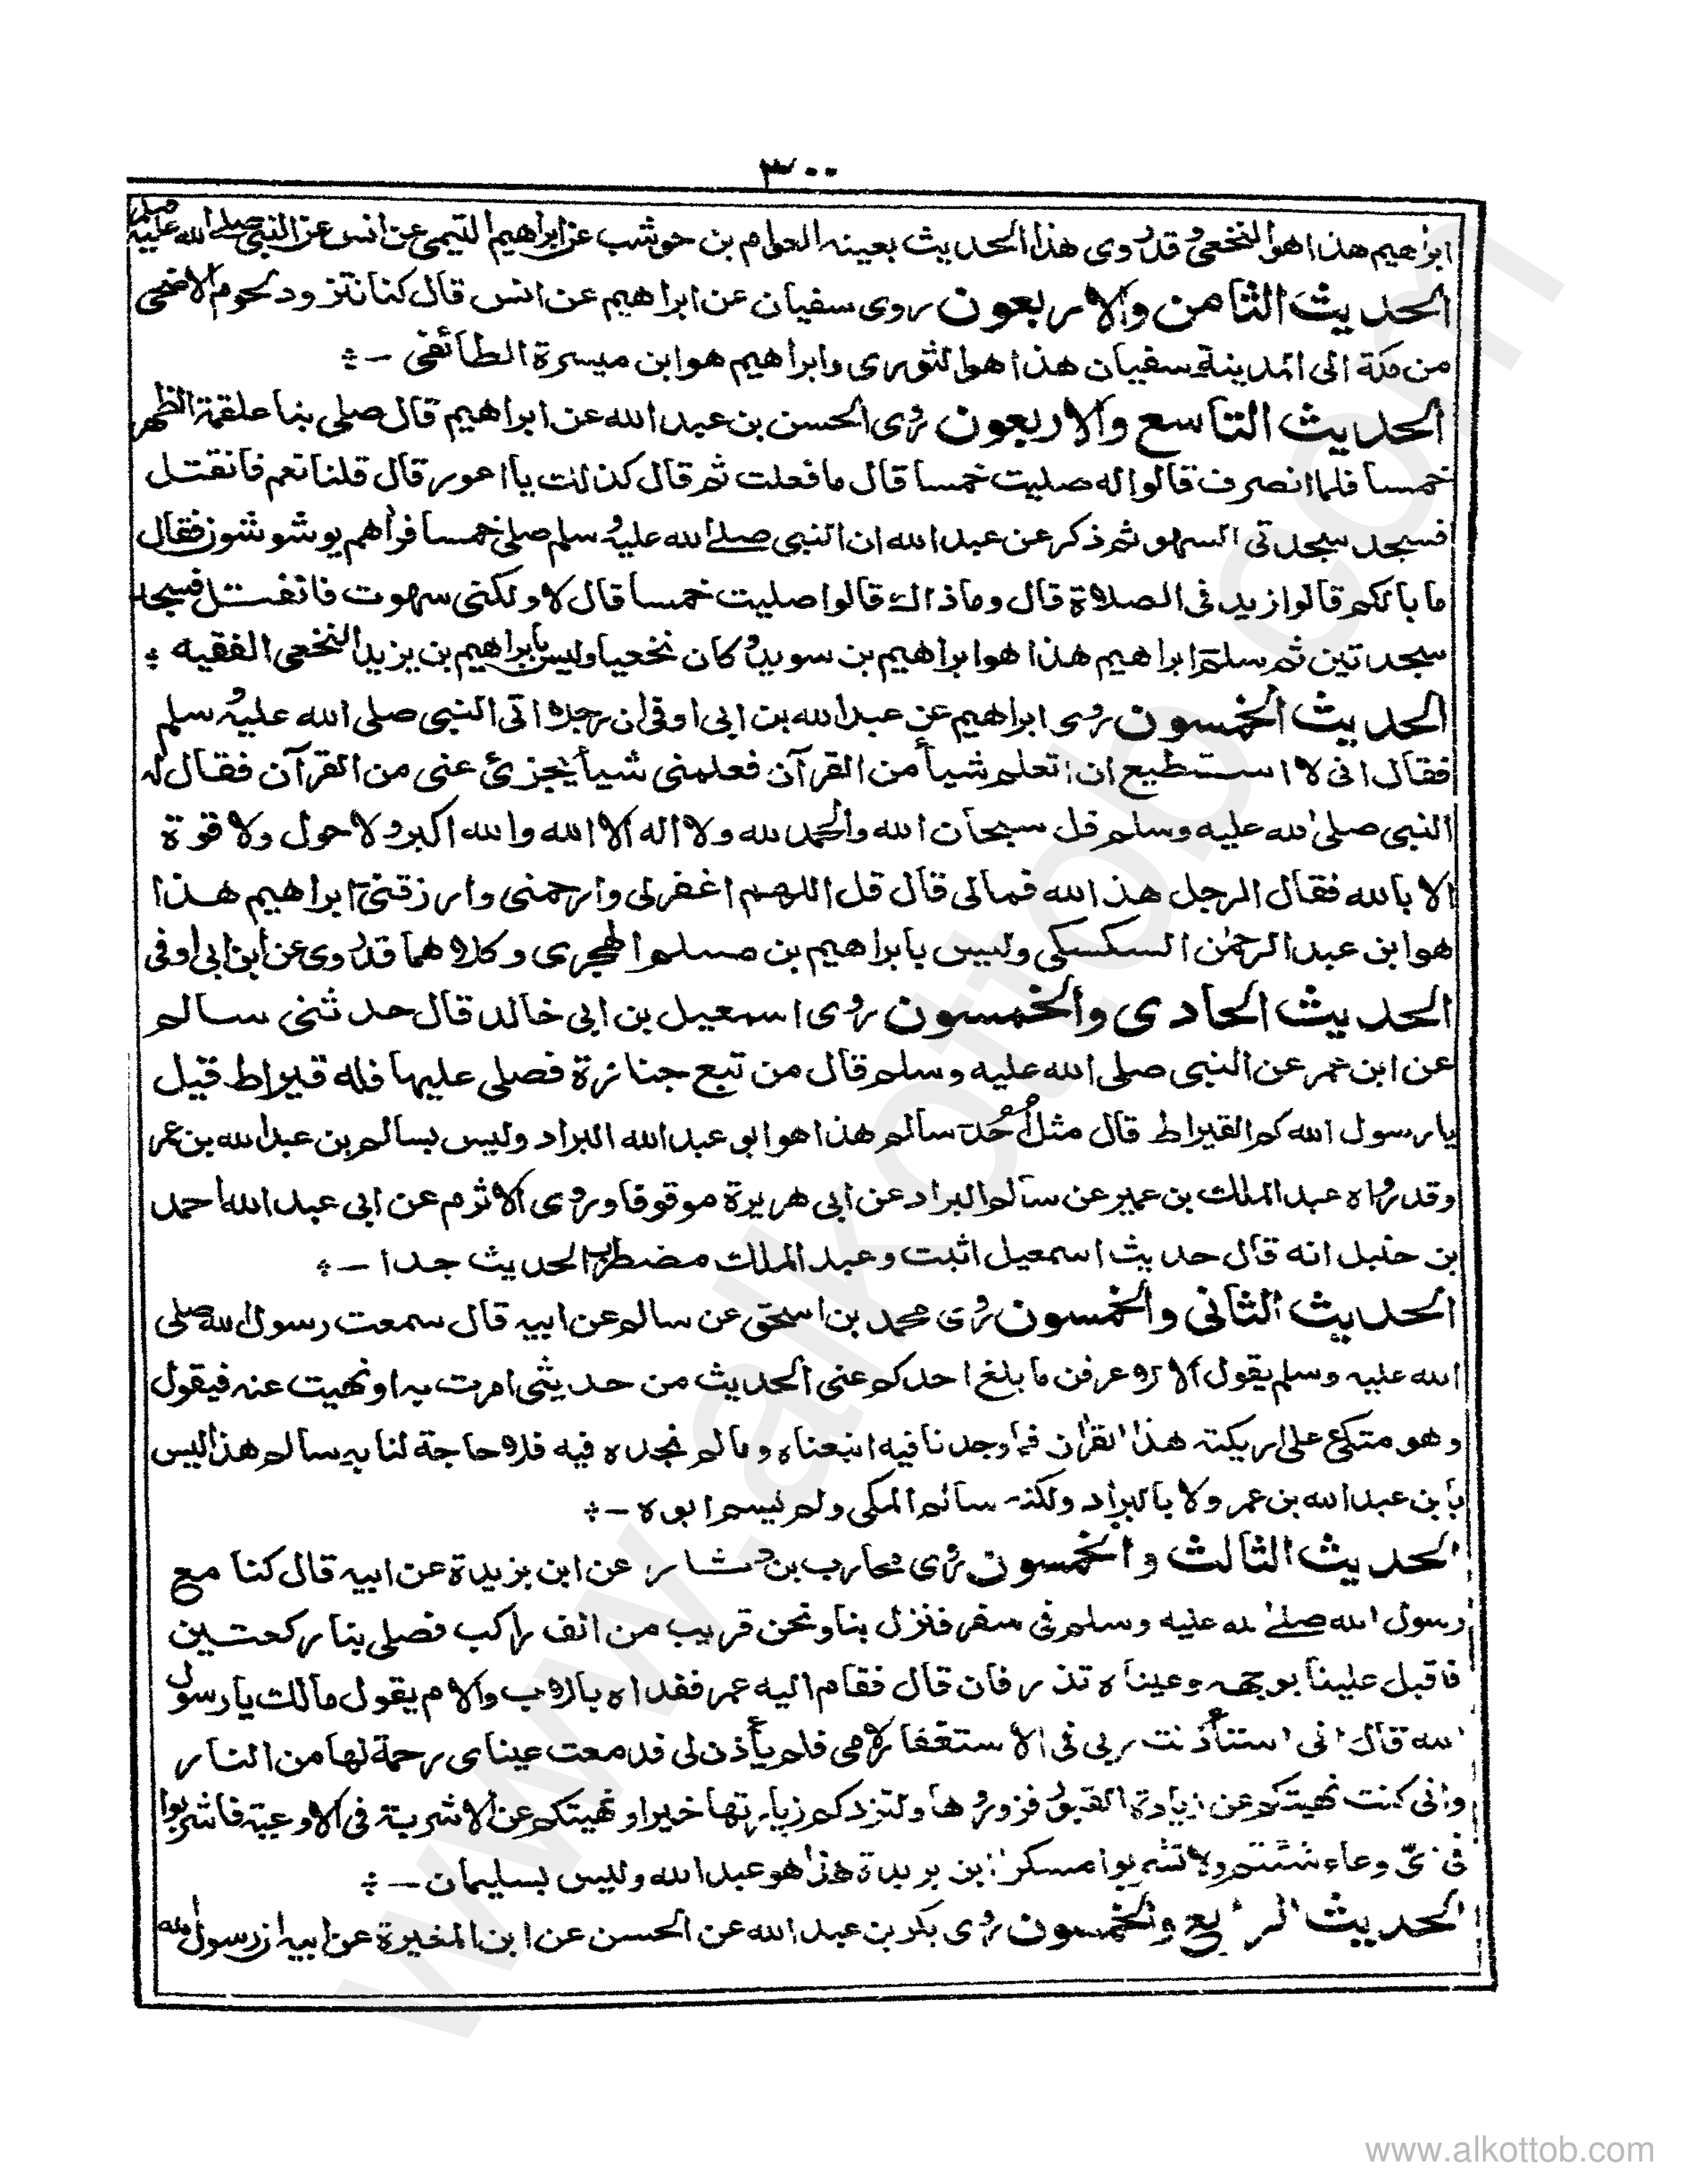 ٣٠٠
ابراهيم هذا هو النخعى وقد روى هذا الحديث بعينه العوام بن حوشب عن ابراهيم التيمى عن انس عن النبى صلى الله عليه وسلم
الحديث الثامن والاربعون روى سفيان عن ابراهيم عن انس قال كنا نتزود لحوم الاضحى
من مكة الى المدينة سفيان هذا هو الثورى وابراهيم هو ابن ميسرة الطائفى ـ
الحديث التاسع والاربعون روى الحسن بن عبد الله عن ابراهيم قال صلى بنا علقمة الظهر
خمسا فلما انصرف قالوا له صليت خمسا قال ما فعلت ثم قال كذلك يا اعور قال قلنا نعم فانفتل
فسجد سجدتى السهو ثم ذكر عن عبد الله ان النبى صلى الله عليه وسلم صلى خمسا فراهم يوشوشون فقال
ما بالكم قالوا ازيد فى الصلاة قال وما ذاك قالوا صليت خمسا قال لا ولكنى سهوت فانفتل فسجد
سجدتين ثم سلم ابراهيم هذا هو ابراهيم بن سويد وكان نخعيا وليس بابراهيم بن يزيد النخعى الفقيه
الحديث الخمسون روى ابراهيم عن عبد الله بن ابى اوفى ان رجلا اتى النبى صلى الله عليه وسلم
فقال انى لا استطيع ان اتعلم شيأ من القرآن فعلمنى شيأ يجزئ عنى من القرآن فقال له
النبى صلى الله عليه وسلم قل سبحان الله والحمد لله ولا اله الا الله والله اكبر ولا حول ولا قوة
الا بالله فقال الرجل هذا لله فمالى قال قل اللهم اغفر لى وارحمنى وارزقنى ابراهيم هذا
هو ابن عبد الرحمن السكسكى وليس بابراهيم بن مسلم الهجرى وكلاهما قد روى عن ابن ابى اوفى
الحديث الحادى والخمسون روى اسمعيل بن ابى خالد قال حدثنى سالم
عن ابن عمر عن النبى صلى الله عليه وسلم قال من تبع جنازة فصلى عليها فله قيراط قيل
يا رسول الله كم القيراط قال مثل أحد سالم هذا هو ابو عبد الله البراد وليس بسالم بن عبد الله بن عمر
وقد رواه عبد الملك بن عمير عن سالم البراد عن ابى هريرة موقوفا وروى الاثرم عن ابى عبد الله احمد
بن حنبل انه قال حديث اسمعيل اثبت وعبد الملك مضطرب الحديث جدا ـ
الحديث الثانى والخمسون روى محمد بن اسحق عن سالم عن ابيه قال سمعت رسول الله صلى
الله عليه وسلم يقول الا لا اعرفن ما بلغ احدكم عنى الحديث من حديثى امرت به او نهيت عنه فيقول
وهو متكئ على اريكته هذا القران فما وجدنا فيه اتبعناه وما لم نجده فيه فلا حاجة لنا به سالم هذا ليس
بابن عبد الله بن عمر ولا بالبراد ولكنه سالم المكى ولم يسم ابوه ـ
الحديث الثالث والخمسون روى محارب بن دثار عن ابن بريدة عن ابيه قال كنا مع
رسول الله صلى الله عليه وسلم فى سفر فنزل بنا ونحن قريب من الف راكب فصلى بنا ركعتين
فاقبل علينا بوجهه وعيناه تذرفان قال فقام اليه عمر ففداه بالاب والام يقول مالك يا رسول
الله قال انى استأذنت ربى فى الاستغفار لامى فلم يأذن لى فدمعت عيناى رحمة لها من النار
وانى كنت نهيتكم عن زيارة القبور فزوروها ولتزدكم زيارتها خيرا ونهيتكم عن الاشربة فى الاوعية فاشربوا
فى اىّ وعاء شئتم ولا تشربوا مسكرا ابن بريدة هذا هو عبد الله وليس بسليمان ـ
الحديث الرابع والخمسون روى بكر بن عبد الله عن الحسن عن ابن المغيرة عن ابيه ان رسول الله
www.alkottob.com
www.alkottob.com